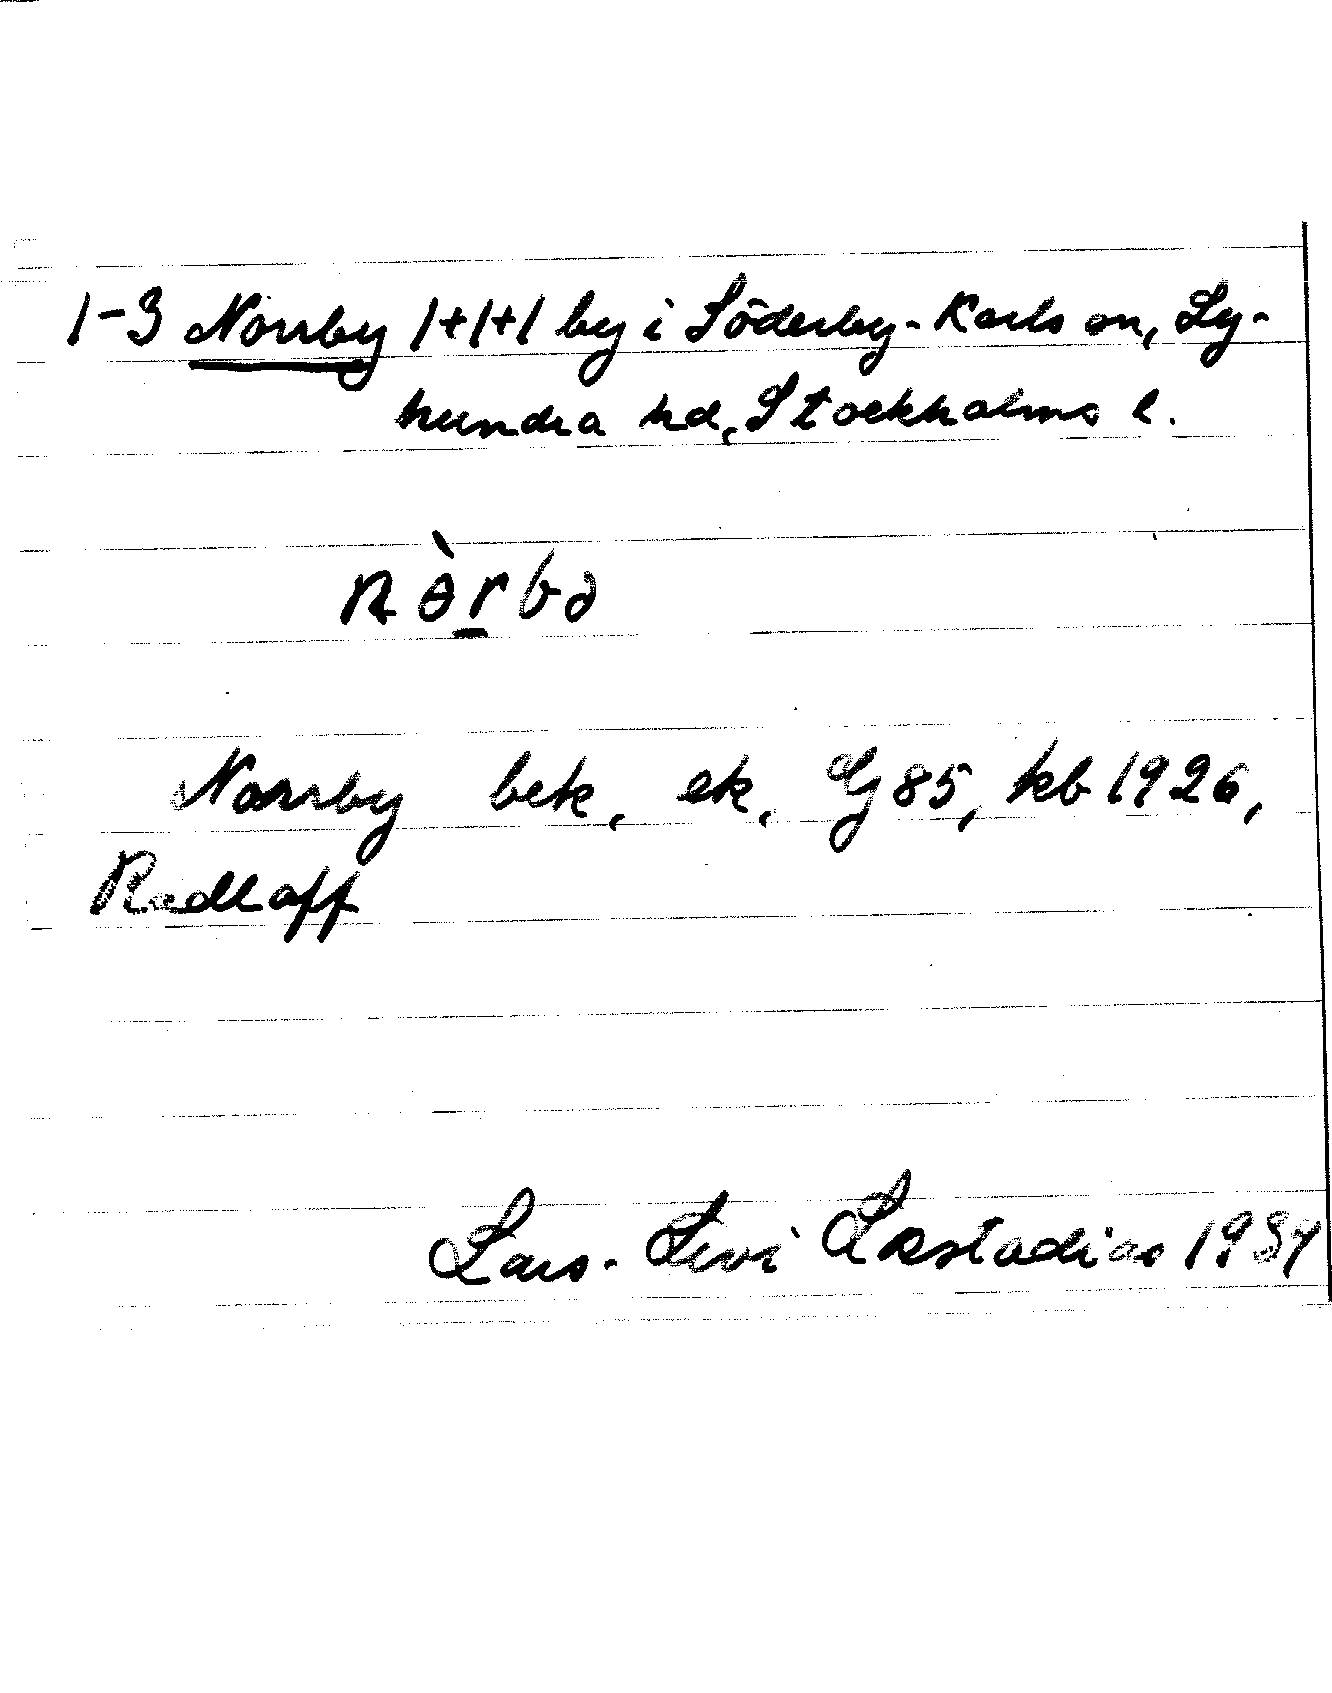 1-3 Norrby 1+1+1 by i Söderby-Karls sn, Ly-
hundra hd, Stockholms l.
nɵ̀r̲bə
Norrby bek, ek, Gj 85, kb 1926,
Radloff
Lars-Levi Læstadius 1934